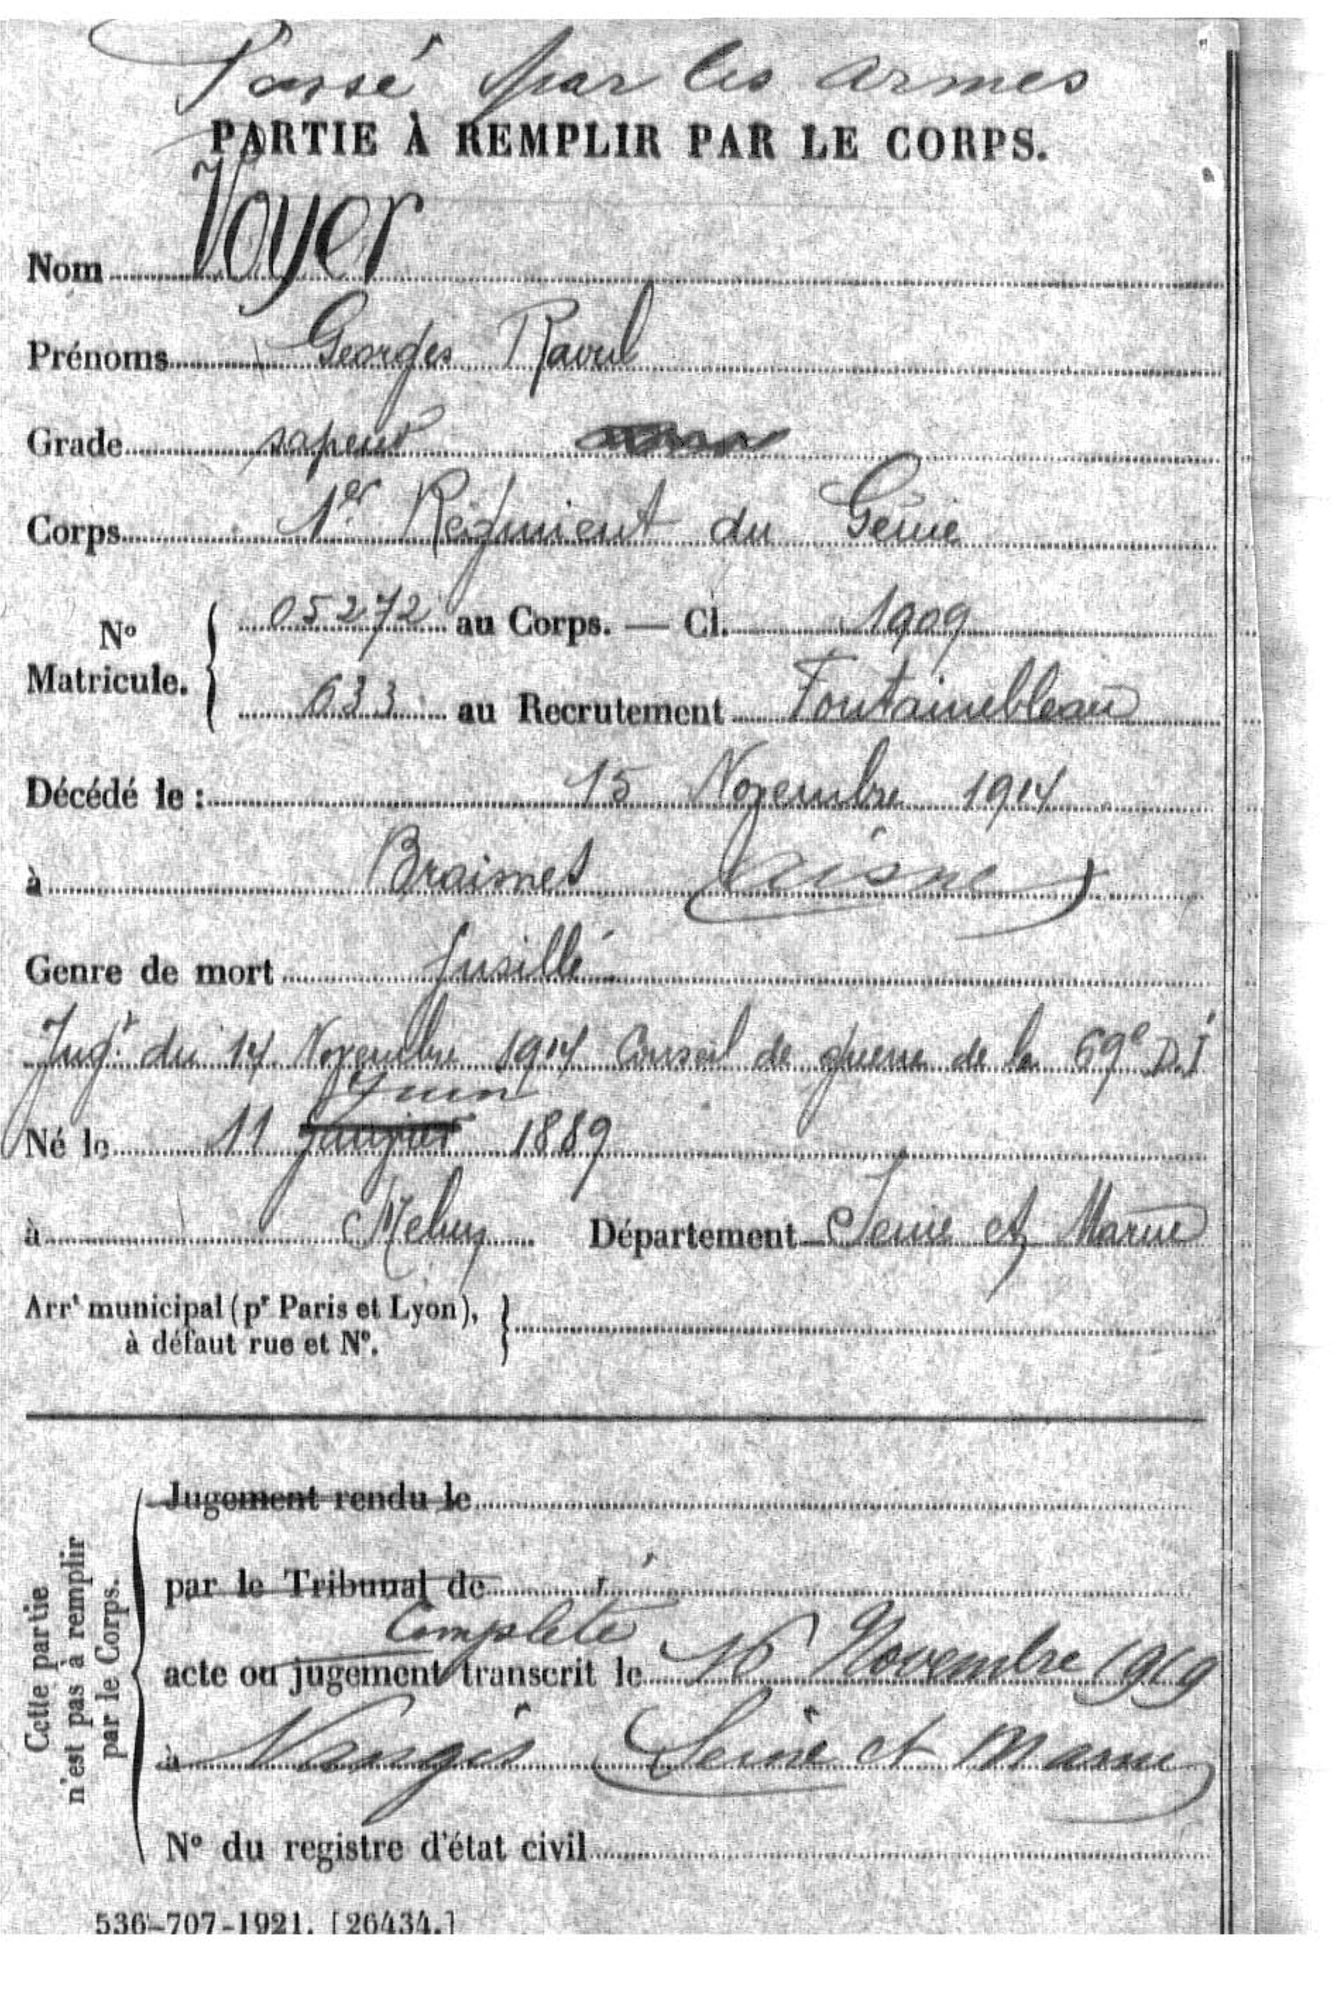 Passé par les armes
PARTIE À REMPLIR PAR LE CORPS.
Nom Voyer
Prénoms Georges Raoul
Grade sapeur
Corps 1er Régiment du Génie
N° Matricule. { 05272 au Corps. — Cl. 1909
633 au Recrutement Fontainebleau
Décédé le : 15 Novembre 1914
à Braisnes (Aisne)
Genre de mort fusillé
Jugt du 14 Novembre 1914 Conseil de guerre de la 69e D.I
Juin
Né le 11 Janvier 1889
à Melun Département Seine et Marne
Arrt municipal (pr Paris et Lyon),
à défaut rue et N°.
Cette partie
n'est pas à remplir
par le Corps.
Jugement rendu le
par le Tribunal de
Complété
acte ou jugement transcrit le 16 Novembre 1919
à Nangis (Seine et Marne)
N° du registre d'état civil
536-707-1921. [26434.]